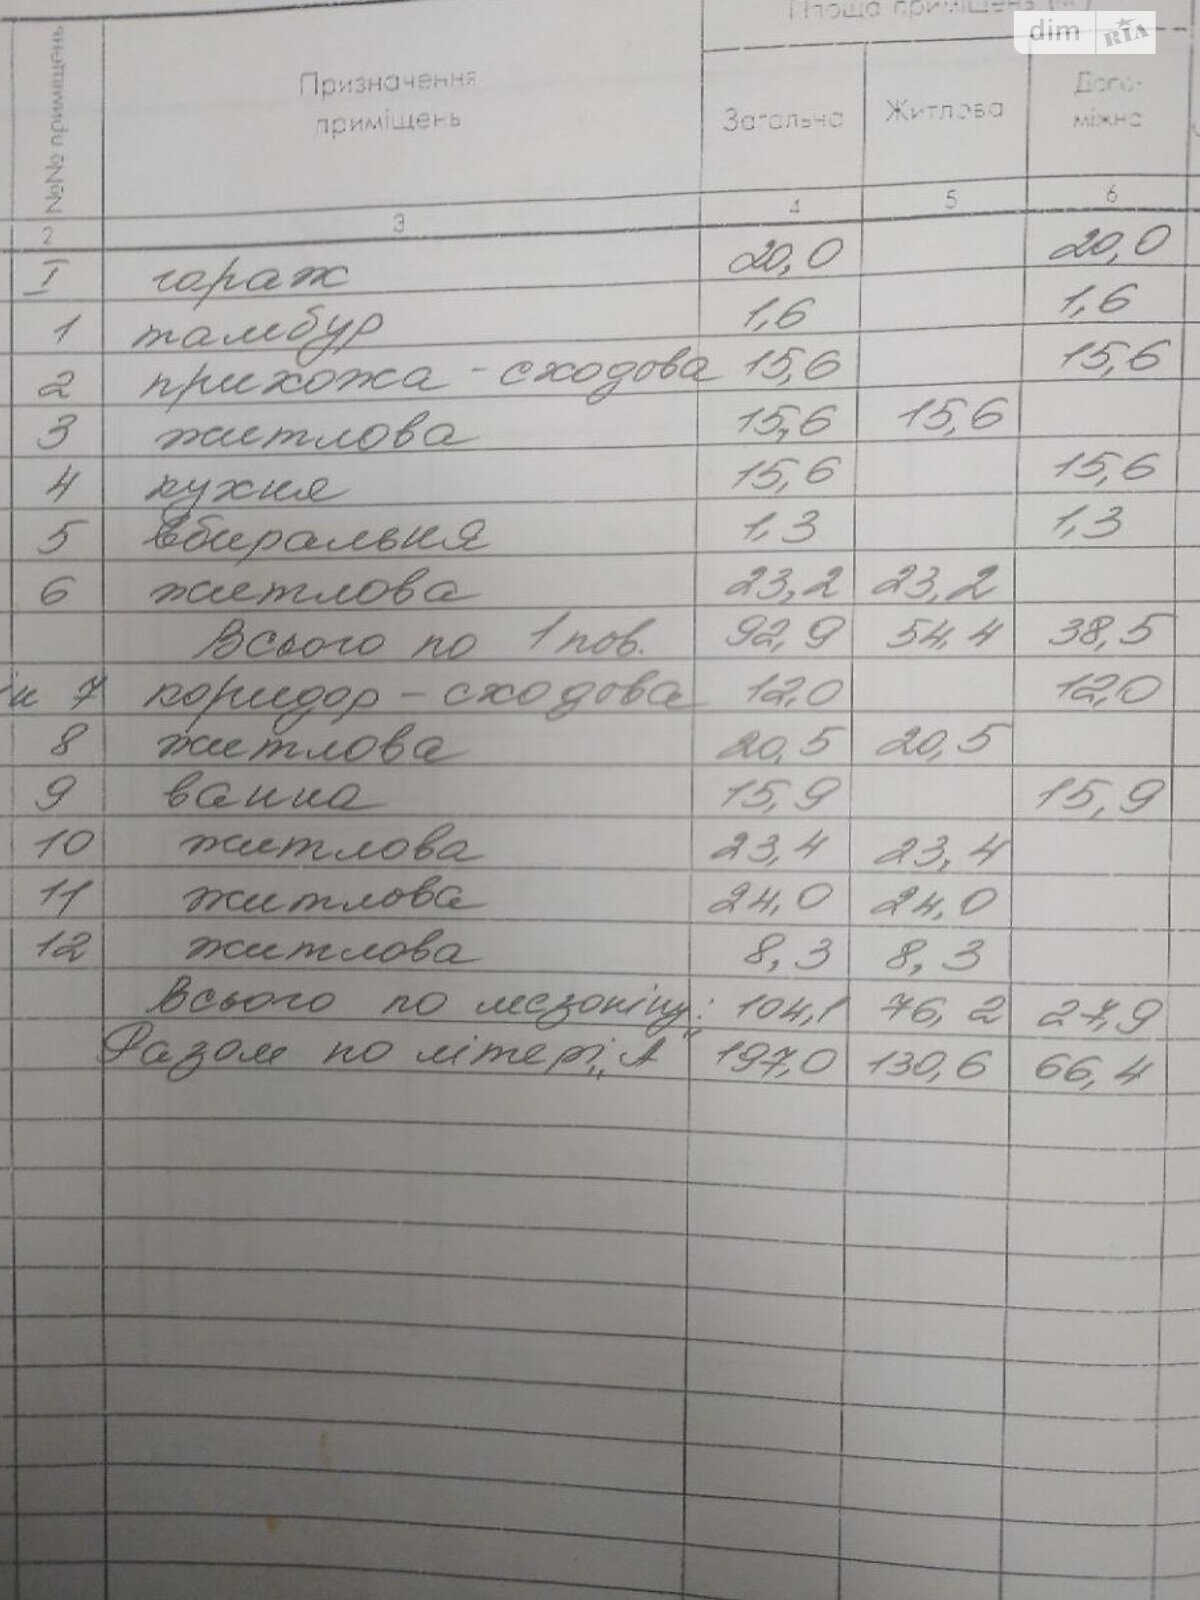 Площа приміщень (м²)
dim RIA
№№ приміщень
Призначення приміщень
Загальна
Житлова
Допо-
міжна
2 3 4 5 6
I гараж 20,0 20,0
1 тамбур 1,6 1,6
2 прихожа - сходова 15,6 15,6
3 житлова 15,6 15,6
4 кухня 15,6 15,6
5 вбиральня 1,3 1,3
6 житлова 23,2 23,2
Всього по 1 пов. 92,9 54,4 38,5
7 коридор - сходова 12,0 12,0
8 житлова 20,5 20,5
9 ванна 15,9 15,9
10 житлова 23,4 23,4
11 житлова 24,0 24,0
12 житлова 8,3 8,3
Всього по мезоніну: 104,1 76,2 27,9
Разом по літері „А" 197,0 130,6 66,4